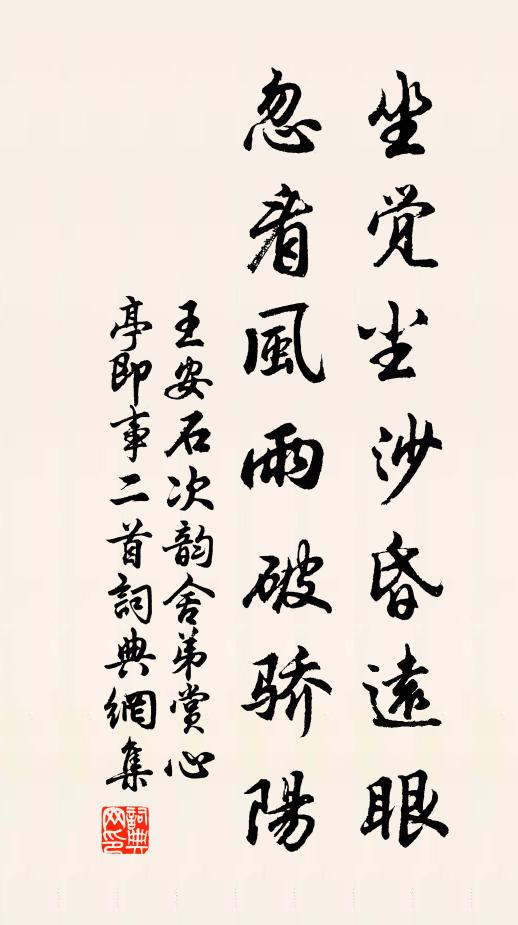 坐觉尘沙昏遠眼
忽看風雨破骄陽
王安石次韵舍弟赏心
亭即事二首詞典網集
詞典网印